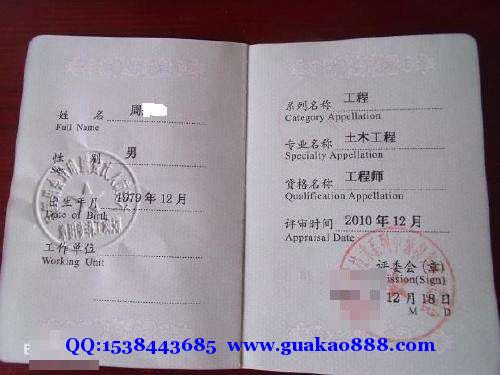 姓 名 周
Full Name
性 别 男
出生年月 1979 年 12 月
Date of Birth
工作单位
Working Unit
系列名称 工程
Category Appellation
专业名称 土木工程
Specialty Appellation
资格名称 工程师
Qualification Appellation
评审时间 2010 年 12 月
Appraisal Date
证委会(章)
ission(Sign)
12 月 18 日
M D
QQ:1538443685 www.guakao888.com